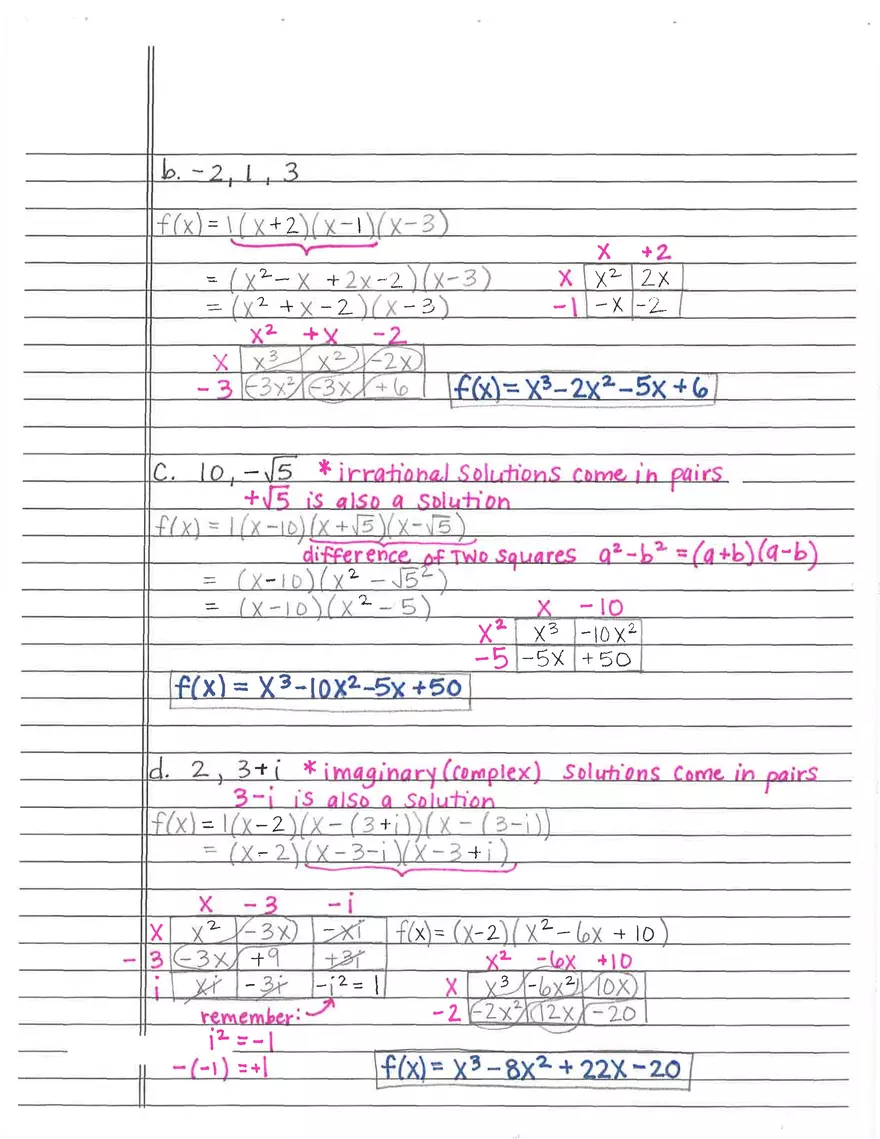 b. -2, 1, 3
f(x) = 1(x+2)(x-1)(x-3)
x +2
= (x²- x +2x-2)(x-3)
x x² 2x
= (x² +x-2)(x-3)
-1 -x -2
x² +x -2
x x³ x² -2x
-3 -3x² -3x +6
f(x) = x³-2x²-5x+6
c. 10, -√5 * irrational solutions come in pairs
+√5 is also a solution
f(x) = 1(x-10)(x+√5)(x-√5)
difference of two squares a²-b² = (a+b)(a-b)
= (x-10)(x² - √5²)
= (x-10)(x²-5)
x -10
x² x³ -10x²
-5 -5x +50
f(x) = x³-10x²-5x+50
d. 2, 3+i * imaginary (complex) solutions come in pairs
3-i is also a solution
f(x) = 1(x-2)(x-(3+i))(x-(3-i))
= (x-2)(x-3-i)(x-3+i)
x -3 -i
x x² -3x -xi
f(x) = (x-2)(x²-6x+10)
-3 -3x +9 +3i
x² -6x +10
i xi -3i -i² = 1
x x³ -6x² 10x
remember:
-2 -2x² 12x -20
i² = -1
-(-1) = +1
f(x) = x³-8x²+22x-20